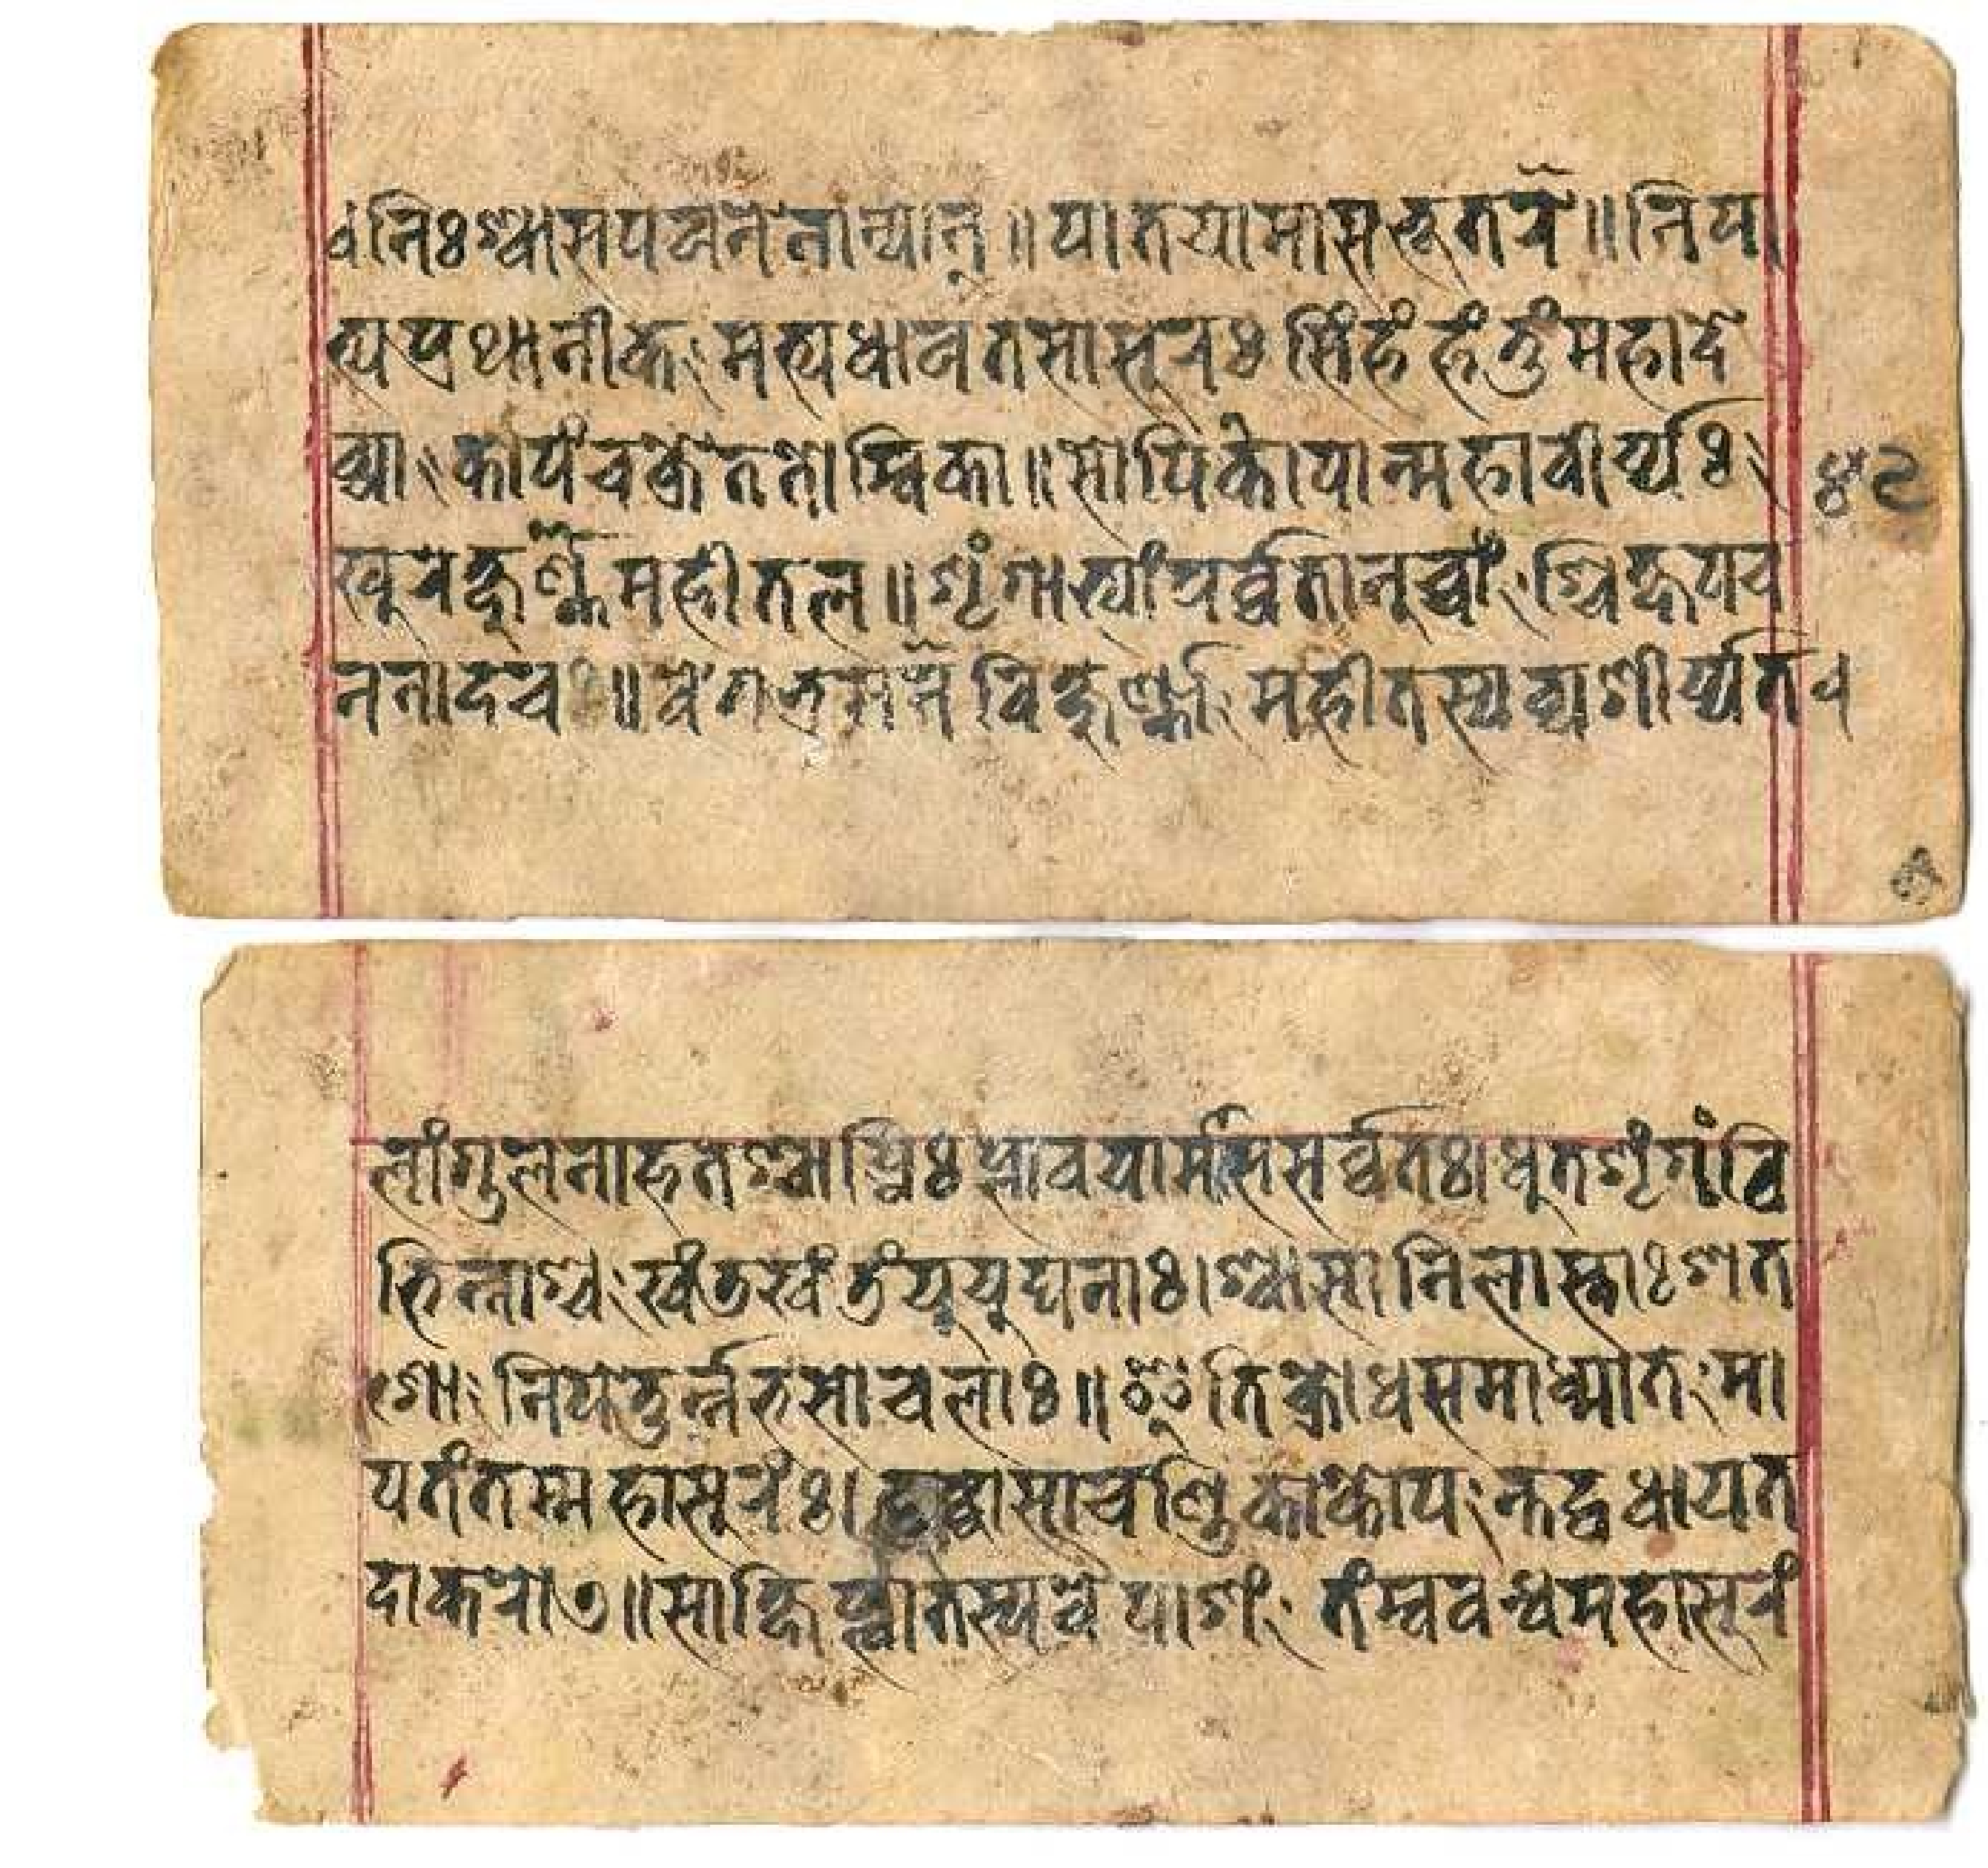 वंनिःश्वासपवनेनान्यान्॥पातयामासभूतले॥निपा
त्यप्रथमानीक मभ्यधावतसासूरः सिंहं हंतुंमहादे
व्या कोपंचक्रेततोम्बिका॥सोपिकोपान्महावीर्य्यः ४८
खूरक्षूर्ण्णमहीतल॥शृंगाभ्यांपर्व्वतानूच्चां श्चिक्षपच
ननादच॥वेगभ्रमनेविक्षूर्ण्णा महीतस्यव्यशीर्य्यतव
लांगुलनाहतश्चाब्धिः प्लावयामाससर्व्वतः।धूतशृंगंवि
भिन्नाश्च खंतखंतुंययूघनाः।श्वासानिलास्ताःशत
शो निपेतुर्न्नभसोचलाः॥इतिक्रोधसमाध्मात मा
पतंतम्महासूरंः।दृष्ट्वासाचण्डिकाकोप न्तद्वधायत
दाकरो७॥साक्षिप्त्वातस्यवैपाशं तंम्बवन्धमहासूरं